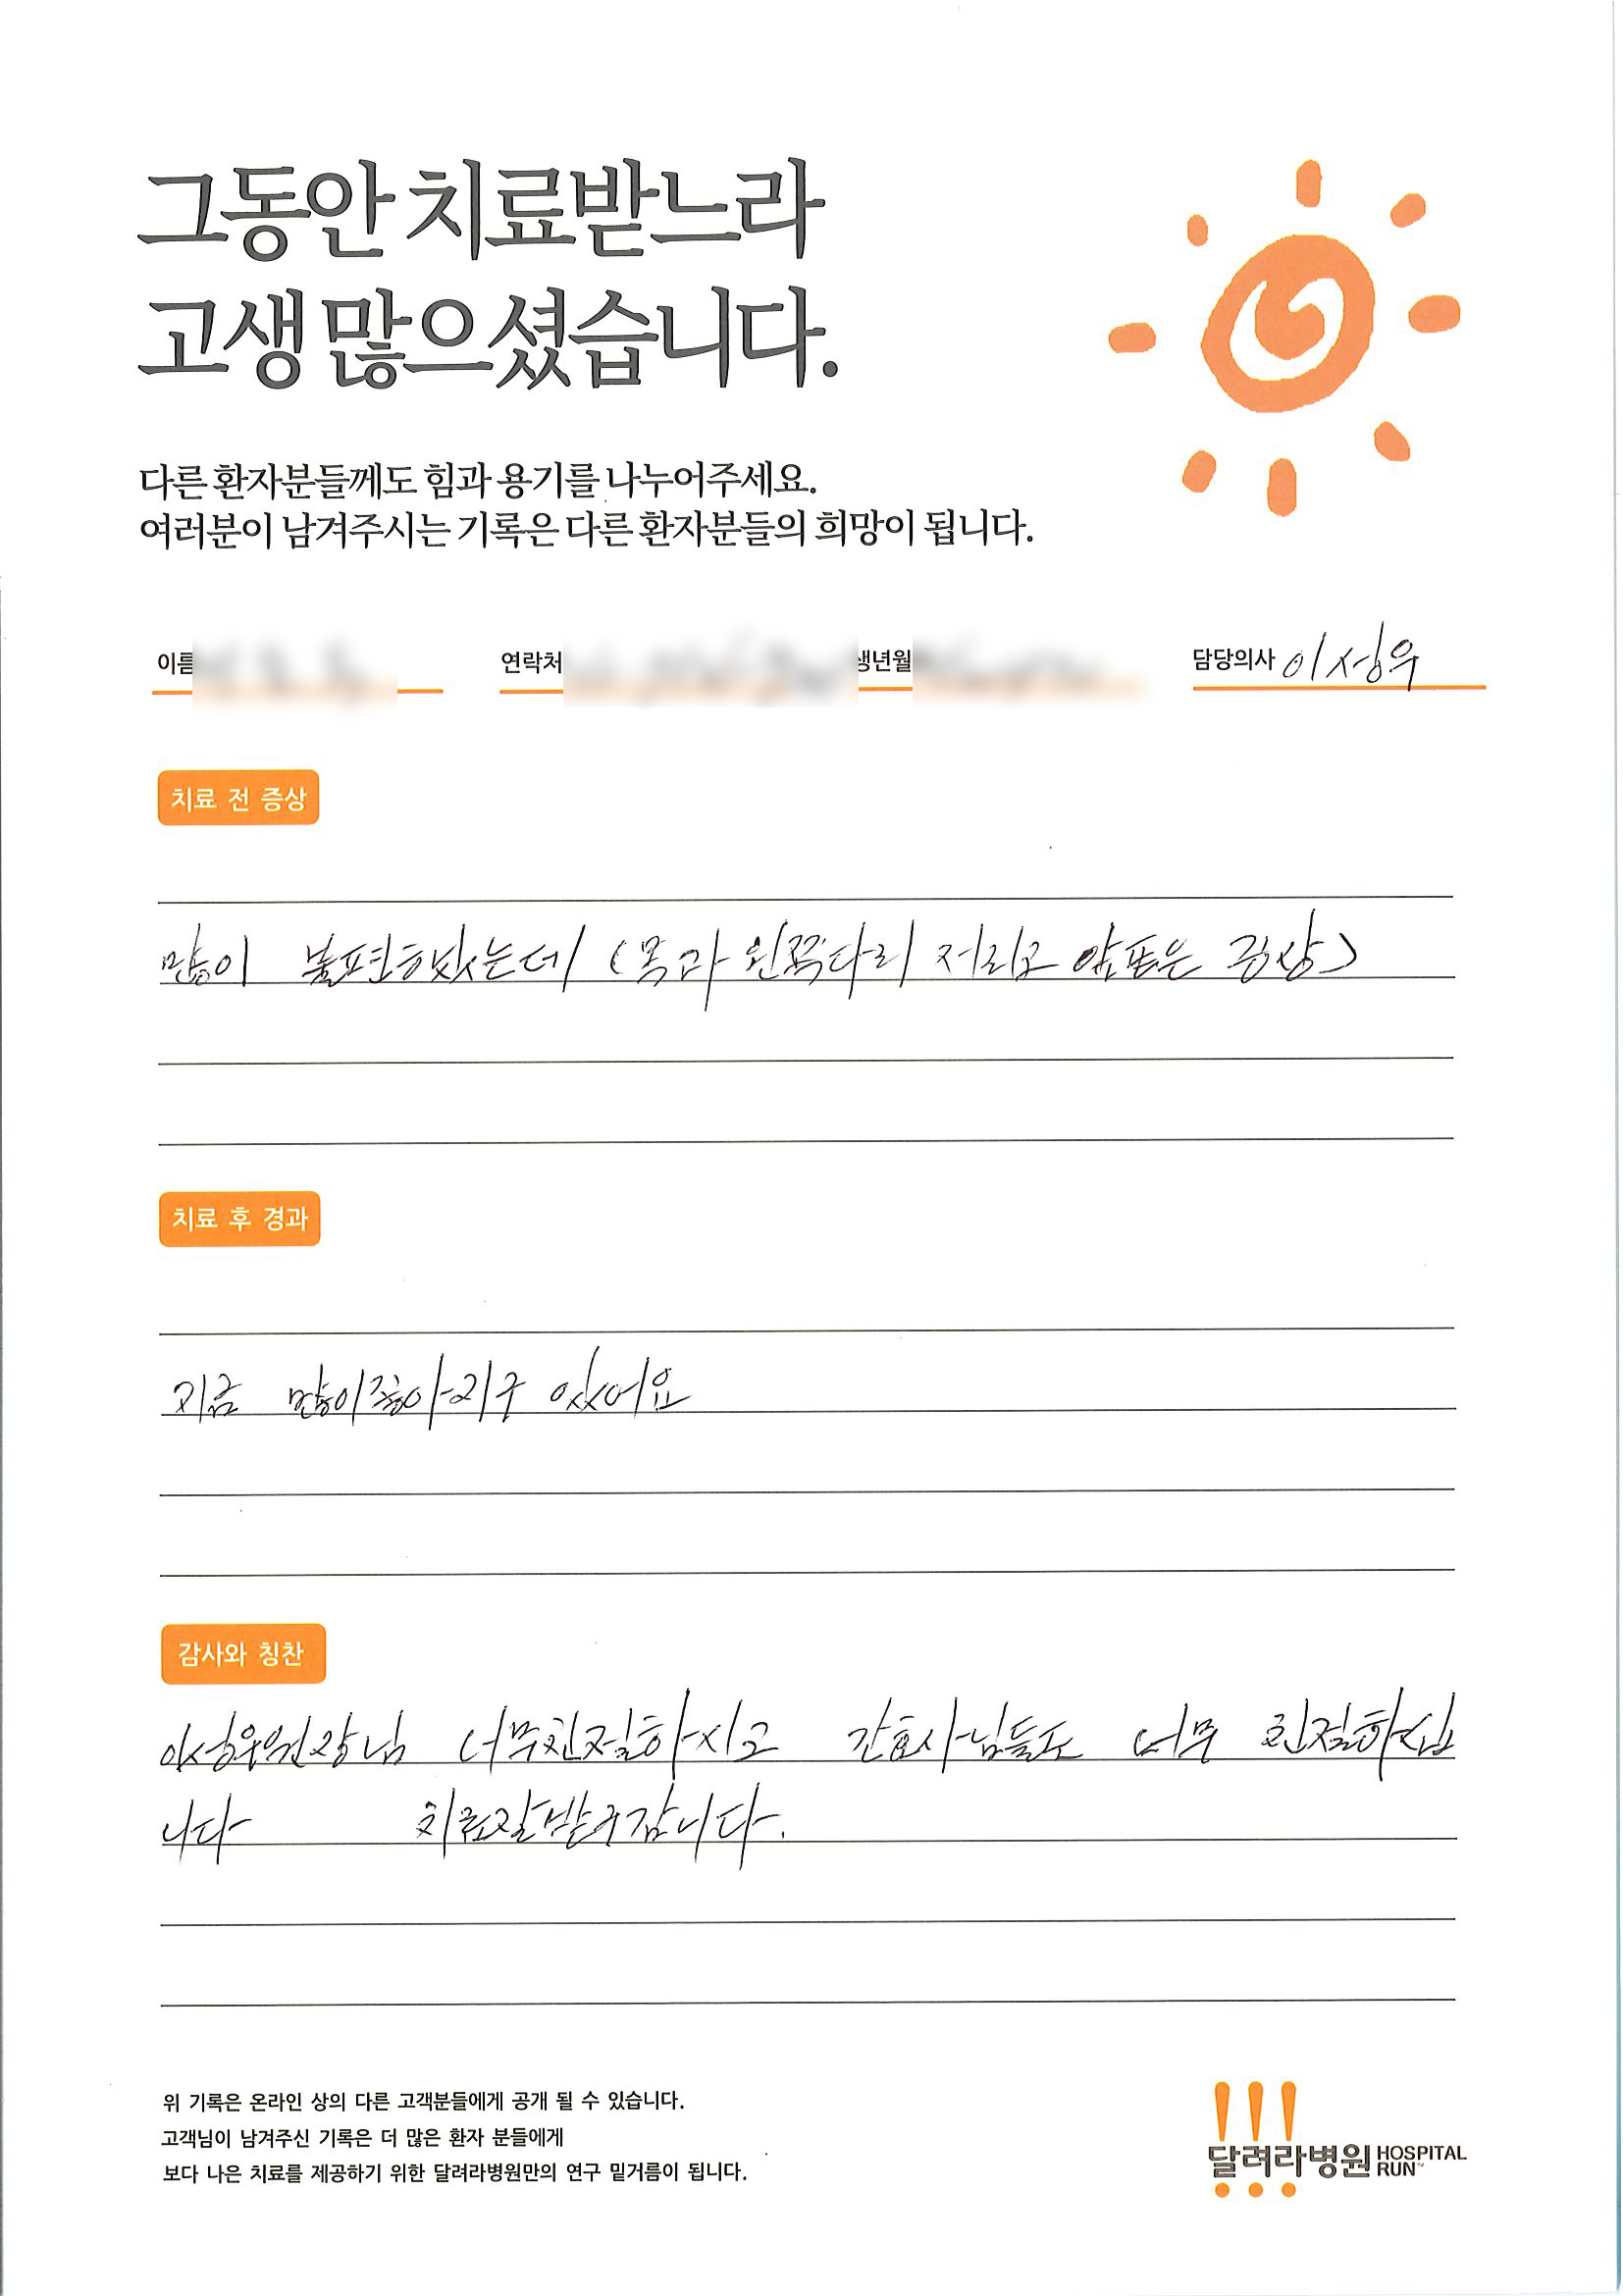 그동안 치료받느라
고생 많으셨습니다.
다른 환자분들께도 힘과 용기를 나누어주세요.
여러분이 남겨주시는 기록은 다른 환자분들의 희망이 됩니다.
이름 연락처 생년월 담당의사 이성우
치료 전 증상
많이 불편하였는데 (목과 왼쪽다리 저리고 아픈 증상)
치료 후 경과
지금 많이좋아지구 있어요
감사와 칭찬
이성우원장님 너무친절하시고 간호사님들도 너무 친절하십
니다 치료잘받구갑니다.
위 기록은 온라인 상의 다른 고객분들에게 공개 될 수 있습니다.
고객님이 남겨주신 기록은 더 많은 환자 분들에게
보다 나은 치료를 제공하기 위한 달려라병원만의 연구 밑거름이 됩니다.
달려라병원 HOSPITAL RUN™